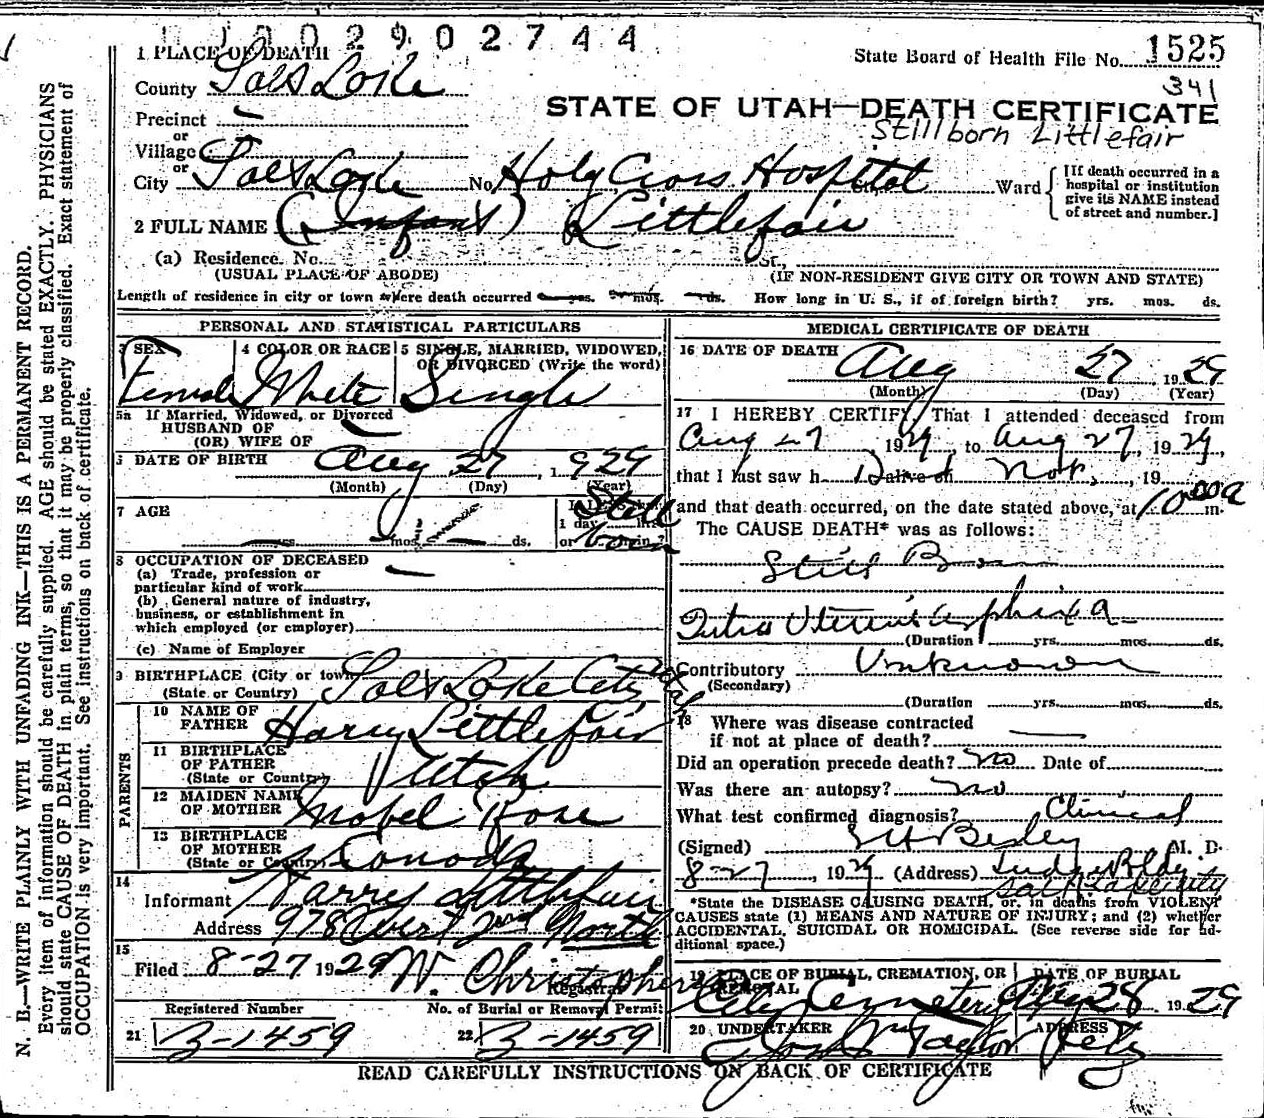 1 1 0 0 2 9 0 2 7 4 4
State Board of Health File No. 1525
341
1 PLACE OF DEATH
County Salt Lake
STATE OF UTAH—DEATH CERTIFICATE
Stillborn Littlefair
Precinct
or
Village
or
City Salt Lake No. Holy Cross Hospital St. Ward
[If death occurred in a hospital or institution give its NAME instead of street and number.]
2 FULL NAME (Infant) Littlefair
(a) Residence. No. St.,
(USUAL PLACE OF ABODE) (IF NON-RESIDENT GIVE CITY OR TOWN AND STATE)
Length of residence in city or town where death occurred yrs. mos. ds. How long in U. S., if of foreign birth? yrs. mos. ds.
PERSONAL AND STATISTICAL PARTICULARS
3 SEX
Female
4 COLOR OR RACE
White
5 SINGLE, MARRIED, WIDOWED, OR DIVORCED (Write the word)
Single
5a If Married, Widowed, or Divorced
HUSBAND OF
(OR) WIFE OF
6 DATE OF BIRTH Aug 27, 1929
(Month) (Day) (Year)
7 AGE
yrs. mos. ds.
If LESS than 1 day hrs. or min.?
Still born
8 OCCUPATION OF DECEASED
(a) Trade, profession or
particular kind of work
(b) General nature of industry,
business, or establishment in
which employed (or employer)
(c) Name of Employer
9 BIRTHPLACE (City or town) Salt Lake City Utah
(State or Country)
PARENTS
10 NAME OF FATHER Harry Littlefair
11 BIRTHPLACE OF FATHER (State or Country) Utah
12 MAIDEN NAME OF MOTHER Mabel Rose
13 BIRTHPLACE OF MOTHER (State or Country) Canada
14
Informant Harry Littlefair
Address 978 West 2nd North
15
Filed 8-27 1929 W. Christopherson
Registrar
Registered Number No. of Burial or Removal Permit
21 B-1459 22 B-1459
MEDICAL CERTIFICATE OF DEATH
16 DATE OF DEATH Aug 27 1929
(Month) (Day) (Year)
17 I HEREBY CERTIFY, That I attended deceased from
Aug 27 1929, to Aug 27, 1929,
that I last saw h alive on Not, 19
and that death occurred, on the date stated above, at 10:00 a m.
The CAUSE DEATH* was as follows:
Still Born
Intra Uterine asphixia
(Duration yrs. mos. ds.
Contributory Unknown
(Secondary)
(Duration yrs. mos. ds.
18 Where was disease contracted
if not at place of death?
Did an operation precede death? no Date of
Was there an autopsy? no
What test confirmed diagnosis? Clinical
(Signed) Besley M. D.
8-27, 1929 (Address) Judge Bldg
Salt Lake City
*State the DISEASE CAUSING DEATH, or, in deaths from VIOLENT
CAUSES state (1) MEANS AND NATURE OF INJURY; and (2) whether
ACCIDENTAL, SUICIDAL OR HOMICIDAL. (See reverse side for ad-
ditional space.)
19 PLACE OF BURIAL, CREMATION, OR REMOVAL
City Cemetery
DATE OF BURIAL
Aug 28 1929
20 UNDERTAKER
Jos Wm Taylor
ADDRESS
City
READ CAREFULLY INSTRUCTIONS ON BACK OF CERTIFICATE
N. B.—WRITE PLAINLY WITH UNFADING INK—THIS IS A PERMANENT RECORD.
Every item of information should be carefully supplied. AGE should be stated EXACTLY. PHYSICIANS
should state CAUSE OF DEATH in plain terms, so that it may be properly classified. Exact statement of
OCCUPATION is very important. See instructions on back of certificate.